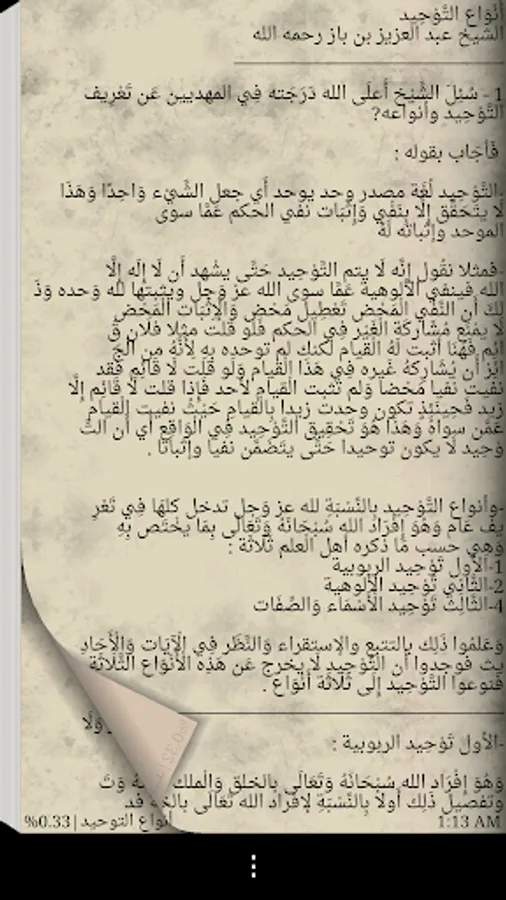 أنْوَاع التَّوْحِيد
الشيخ عبد العزيز بن باز رحمه الله
1 - سُئِلَ الشَّيْخ أعلَى الله دَرَجَته فِي المهديين عَن تَعْرِيف
التَّوْحِيد وأنواعه?
فَأجَاب بقوله :
-التَّوْحِيد لُغَة مصدر وحد يوحد أي جعل الشَّيْء وَاحِدًا وَهَذَا
لَا يتَحَقَّق إلَّا بِنَفْي وَإثْبَات نفي الحكم عَمَّا سوى
الموحد وإثباته لَهُ
-فمثلا نقُول إنَّه لَا يتم التَّوْحِيد حَتَّى يشْهد أن لَا إلَه إلَّا
الله فينفي الألوهية عَمَّا سوى الله عز وَجل ويثبتها لله وَحده وَذَ
لِكَ أن النَّفْي الْمَحْض تَعْطِيل مَحْض وَالْإثْبَات الْمَحْض
لَا يمْنَع مُشَاركَة الْغَيْر فِي الحكم فَلَو قلت مثلا فلَان قَ
ائِم فَهُنَا أثبت لَهُ القيام لكنك لم توحده بِهِ لأنَّهُ من الْجَ
ائِز أن يُشَارِكهُ غَيره فِي هَذَا الْقيام وَلَو قلت لَا قَائِم فقد
نفيت نفيا مَحْضا وَلم تثبت القيام لأحد فَإذا قلت لَا قَائِم إلَّا
زيد فَحِينَئِذٍ تكون وحدت زيدا بِالْقيام حَيْثُ نفيت القيام
عَمَّن سواهُ وَهَذَا هُوَ تَحْقِيق التَّوْحِيد فِي الْوَاقِع أي أن التَّ
وْحِيد لَا يكون توحيدا حَتَّى يتَضَمَّن نفيا وإثباتا .
-وأنواع التَّوْحِيد بِالنِّسْبَةِ لله عز وَجل تدخل كلهَا فِي تَعْرِ
يف عَام وَهُوَ إفْرَاد الله سُبْحَانَهُ وَتَعَالَى بِمَا يخْتَص بِهِ
وَهِي حسب مَا ذكره أهل العلم ثَلَاثَة :
1-الأول تَوْحِيد الربوبية
2-الثَّانِي تَوْحِيد الألوهية
4-الثَّالِث تَوْحِيد الْأسْمَاء وَالصِّفَات
وَعَلمُوا ذَلِك بالتتبع والإستقراء وَالنَّظَر فِي الْآيَات وَالْأحَادِ
يث فوجدوا أن التَّوْحِيد لَا يخرج عَن هَذِه الْأنْوَاع الثَّلَاثَة
فنوعوا التَّوْحِيد إلَى ثَلَاثَة أنْوَاع .
وَلَا
-الأول تَوْحِيد الربوبية :
وَهُوَ إفْرَاد الله سُبْحَانَهُ وَتَعَالَى بالخلق وَالْملك وَتَ
وتفصيل ذَلِك أولا بِالنِّسْبَةِ لإفراد الله تَعَالَى قد
1:13 AM أنواع التوحيد | %0.33